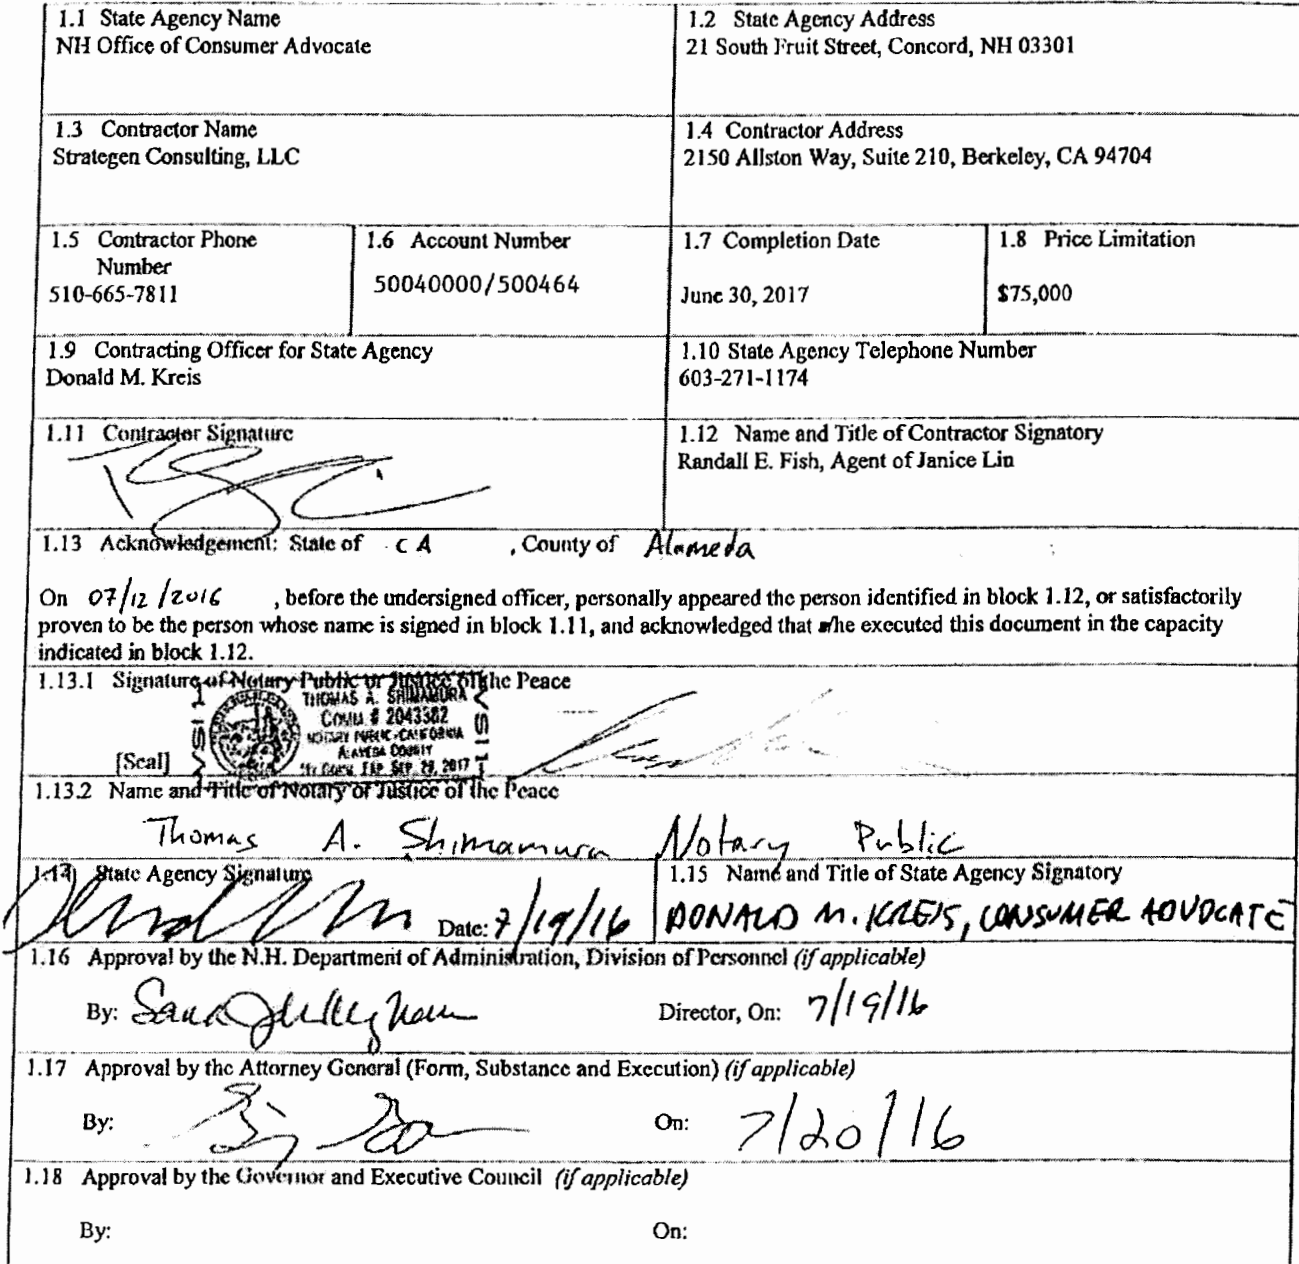 1.1 State Agency Name
NH Office of Consumer Advocate
1.2 State Agency Address
21 South Fruit Street, Concord, NH 03301
1.3 Contractor Name
Strategen Consulting, LLC
1.4 Contractor Address
2150 Allston Way, Suite 210, Berkeley, CA 94704
1.5 Contractor Phone
Number
510-665-7811
1.6 Account Number
50040000/500464
1.7 Completion Date
June 30, 2017
1.8 Price Limitation
$75,000
1.9 Contracting Officer for State Agency
Donald M. Kreis
1.10 State Agency Telephone Number
603-271-1174
1.11 Contractor Signature
1.12 Name and Title of Contractor Signatory
Randall E. Fish, Agent of Janice Lin
1.13 Acknowledgement: State of CA , County of Alameda
On 07/12/2016 , before the undersigned officer, personally appeared the person identified in block 1.12, or satisfactorily
proven to be the person whose name is signed in block 1.11, and acknowledged that s/he executed this document in the capacity
indicated in block 1.12.
1.13.1 Signature of Notary Public or Justice of the Peace
THOMAS A. SHIMAMURA
COMM # 2043582
NOTARY PUBLIC-CALIFORNIA
ALAMEDA COUNTY
My Comm. Exp. Sep. 29, 2017
[Seal]
1.13.2 Name and Title of Notary or Justice of the Peace
Thomas A. Shimamura Notary Public
1.14 State Agency Signature
Date: 7/19/16
1.15 Name and Title of State Agency Signatory
DONALD M. KREIS, CONSUMER ADVOCATE
1.16 Approval by the N.H. Department of Administration, Division of Personnel (if applicable)
By:
Director, On: 7/19/16
1.17 Approval by the Attorney General (Form, Substance and Execution) (if applicable)
By:
On: 7/20/16
1.18 Approval by the Governor and Executive Council (if applicable)
By:
On: